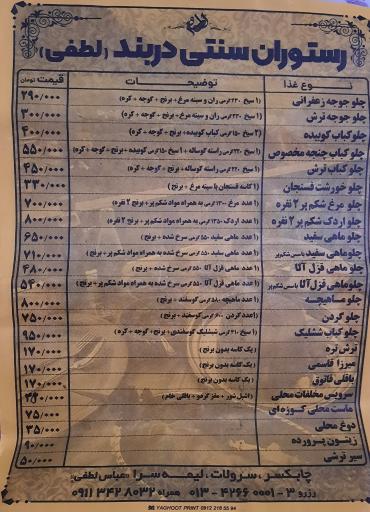 رستوران سنتی دربند (لطفی)
نوع غذا توضیحات قیمت تومان
چلو جوجه زعفرانی (۱ سیخ ۲۳۰ گرمی ران و سینه مرغ + برنج + گوجه + کره) ۲۹۰/۰۰۰
چلو جوجه ترش (۱ سیخ ۲۳۰ گرمی ران و سینه مرغ + برنج + گوجه + کره) ۳۰۰/۰۰۰
چلو کباب کوبیده (۲ سیخ ۱۵۰ گرمی کباب کوبیده + برنج + گوجه + کره) ۴۰۰/۰۰۰
چلو کباب چنجه مخصوص (۱ سیخ ۲۲۰ گرمی راسته گوساله + ۱ سیخ ۱۵۰ گرمی کوبیده + برنج + گوجه + کره) ۵۵۰/۰۰۰
چلو کباب ترش (۱ سیخ ۲۲۰ گرمی راسته گوساله + برنج + گوجه + کره) ۴۵۰/۰۰۰
چلو خورشت فسنجان (۱ کاسه فسنجان با سینه مرغ + برنج) ۳۳۰/۰۰۰
چلو مرغ شکم پر ۲ نفره (۱ عدد مرغ ۱۲۰۰ گرمی به همراه مواد شکم پر + برنج ۲ نفره) ۷۰۰/۰۰۰
چلو اردک شکم پر ۲ نفره (۱ عدد اردک ۱۲۵۰ گرمی به همراه مواد شکم پر + برنج ۲ نفره) ۸۰۰/۰۰۰
چلو ماهی سفید (۱ عدد ماهی سفید ۵۵۰ گرمی سرخ شده + برنج) ۶۵۰/۰۰۰
چلو ماهی سفید با سس شکم پر (۱ عدد ماهی سفید ۵۵۰ گرمی سرخ شده به همراه مواد شکم پر + برنج) ۷۱۰/۰۰۰
چلو ماهی قزل آلا (۱ عدد ماهی قزل آلا ۵۵۰ گرمی سرخ شده + برنج) ۴۸۰/۰۰۰
چلو ماهی قزل آلا با سس شکم پر (۱ عدد ماهی قزل آلا ۵۵۰ گرمی سرخ شده به همراه مواد شکم پر + برنج) ۵۴۰/۰۰۰
چلو ماهیچه (۱ عدد ماهیچه ۵۸۰ گرمی گوسفند + برنج) ۸۰۰/۰۰۰
چلو گردن (۱ عدد گردن ۶۰۰ گرمی گوسفند + برنج) ۷۵۰/۰۰۰
چلو کباب شیشلیک (۱ سیخ ۴۱۰ گرمی شیشلیک گوسفندی + برنج + گوجه + کره) ۹۵۰/۰۰۰
ترش تره (یک کاسه بدون برنج) ۱۷۰/۰۰۰
میرزا قاسمی (یک کاسه بدون برنج) ۱۷۰/۰۰۰
باقلی قاتوق (یک کاسه بدون برنج) ۱۷۰/۰۰۰
سرویس مخلفات محلی (اشپل شور + مغز گردو + باقلی خام)
ماست محلی کوزه ای ۷۵/۰۰۰
دوغ محلی ۳۵/۰۰۰
زیتون پرورده ۹۰/۰۰۰
سیر ترشی ۵۰/۰۰۰
چابکسر، سرولات، لیمه سرا (عباس لطفی)
رزرو ۳ - ۴۲۶۶۰۰۰۱ - ۰۱۳ همراه ۰۹۱۱۳۴۲۸۰۳۲
YAGHOOT PRINT 0912 218 55 94